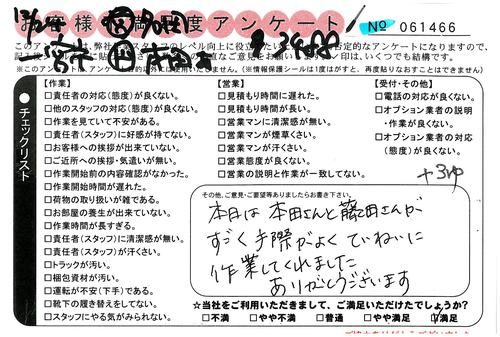 お客様満足度アンケート
No 061466
チェックリスト
【作業】
□責任者の対応(態度)が良くない。
□他のスタッフの対応(態度)が良くない。
□作業を見ていて不安がある。
□責任者(スタッフ)に好感が持てない。
□お客様への挨拶が出来ていない。
□ご近所への挨拶・気遣いが無い。
□作業開始前の内容確認がなかった。
□作業開始時間が遅れた。
□荷物の取り扱いが雑である。
□お部屋の養生が出来ていない。
□作業時間が長すぎる。
□責任者(スタッフ)に清潔感が無い。
□責任者(スタッフ)が汗くさい。
□トラックが汚い。
□梱包資材が汚い。
□運転が不安(下手)である。
□靴下の履き替えをしてない。
□スタッフにやる気がみられない。
【営業】
□見積もり時間に遅れた。
□見積もり時間が長い。
□営業マンに清潔感が無い。
□営業マンが煙草くさい。
□営業マンが汗くさい。
□営業態度が良くない。
□営業の説明と作業が一致してない。
【受付・その他】
□電話の対応が良くない。
□オプション業者の説明
・作業が良くない。
□オプション業者の対応
(態度)が良くない。
その他、ご意見・ご要望等ありましたらお書き下さい。
本日は本田さんと藤田さんが
すごく手際がよくていねいに
作業してくれました
ありがとうございます
☆当社をご利用いただきまして、ご満足いただけたでしょうか?
□不満 □やや不満 □普通 □やや満足 □満足